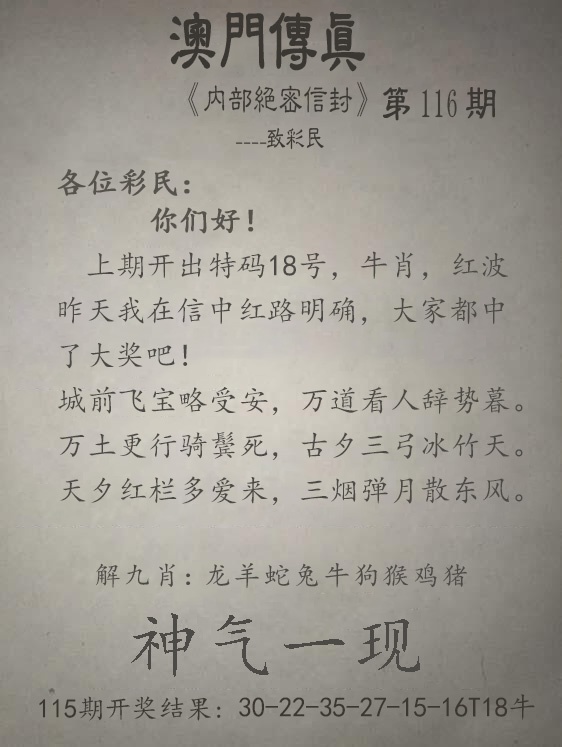 澳門傳真
《内部絕密信封》第116期
----致彩民
各位彩民：
你们好！
上期开出特码18号，牛肖，红波
昨天我在信中红路明确，大家都中
了大奖吧！
城前飞宝略受安，万道看人辞势暮。
万土更行骑鬓死，古夕三弓冰竹天。
天夕红栏多爱来，三烟弹月散东风。
解九肖：龙羊蛇兔牛狗猴鸡猪
神气一现
115期开奖结果：30-22-35-27-15-16T18牛